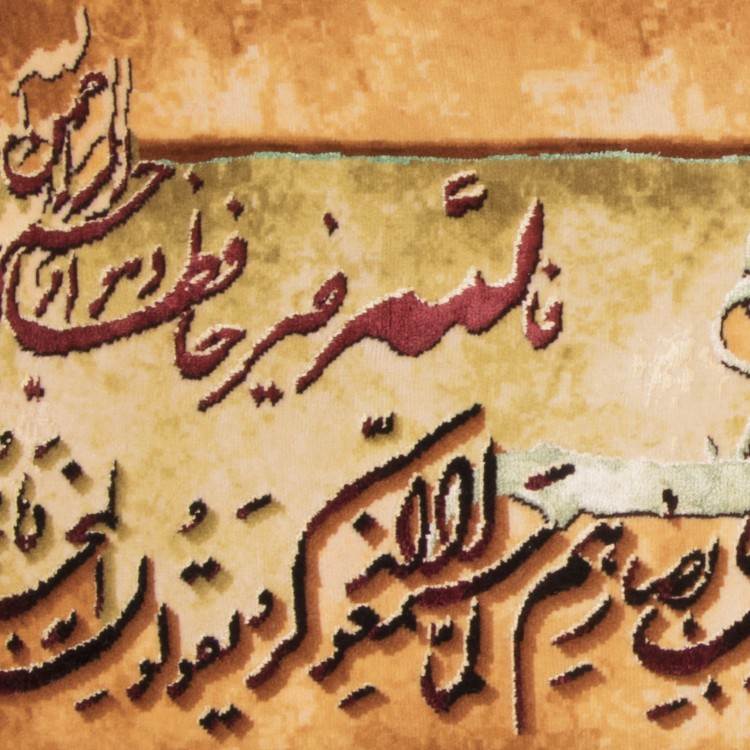 فالله خیر حافظا و هو ارحم الراحمین
بابصارهم لما سمعوا الذکر و یقولون